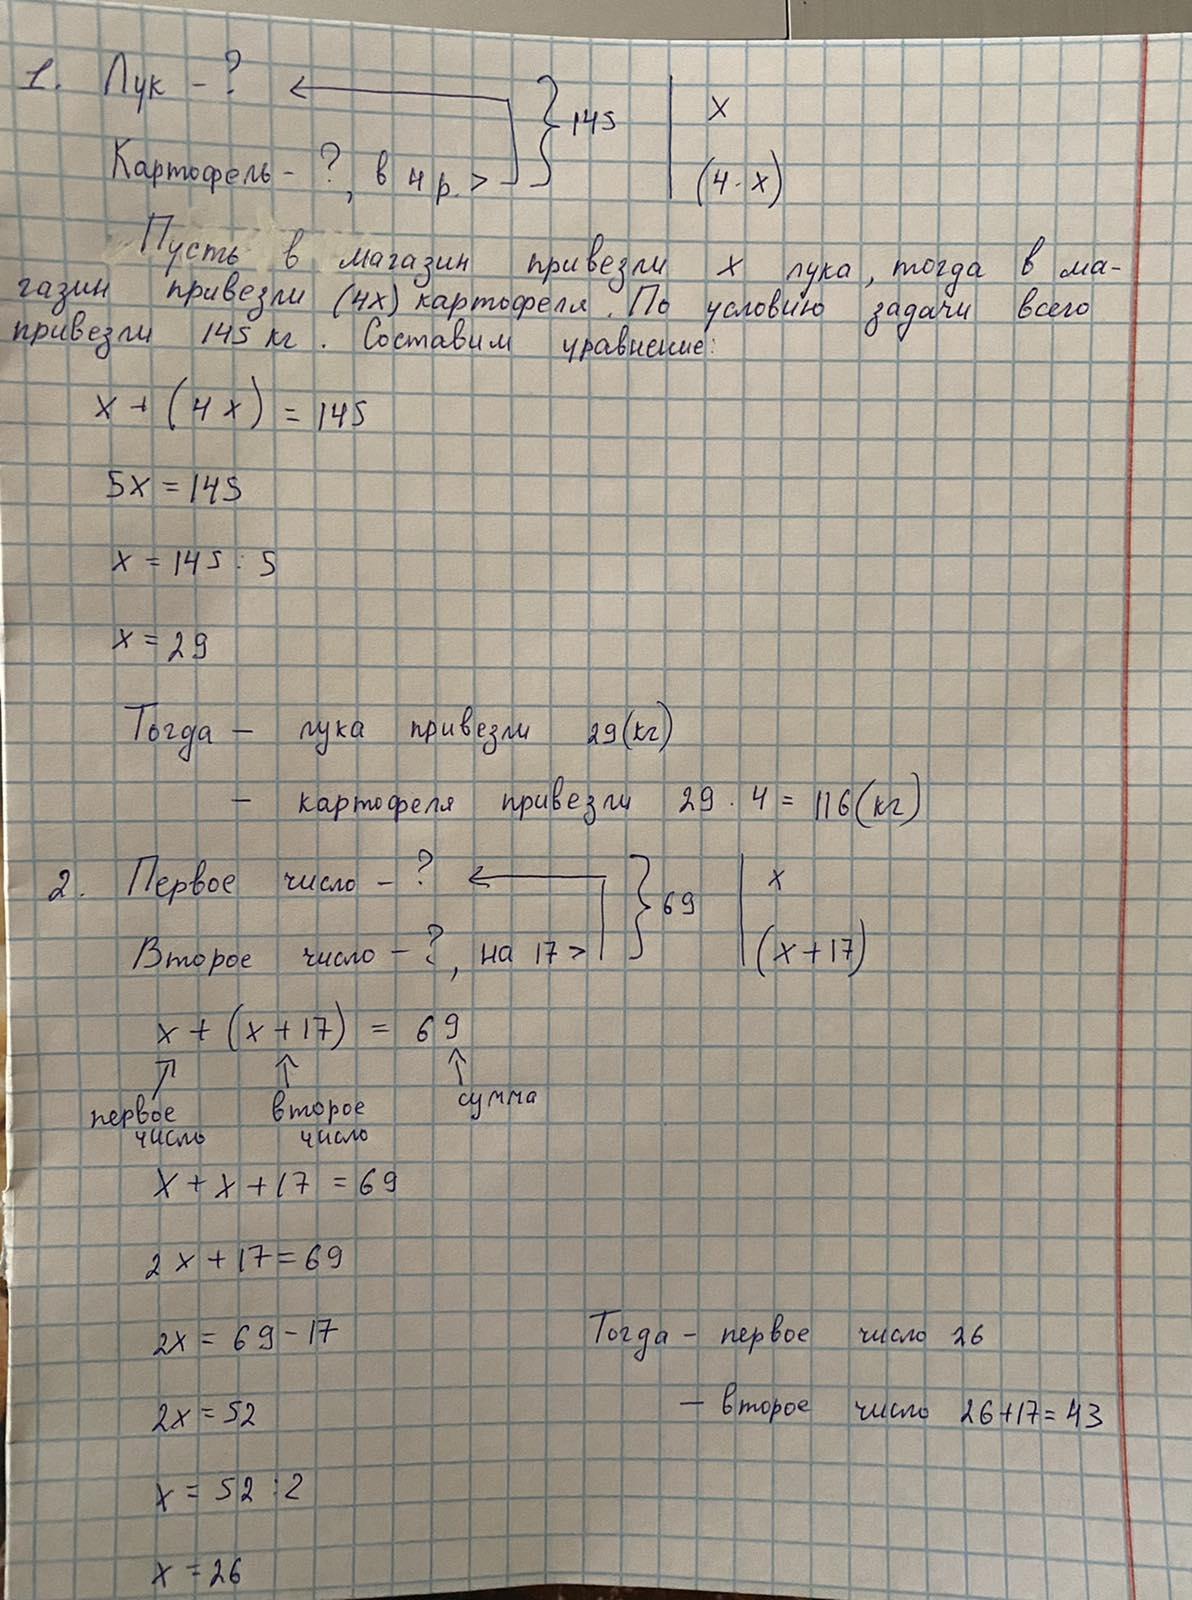 1. Лук - ? } 145 | x
Картофель - ?, в 4 р. > (4 · x)
Пусть в магазин привезли x лука, тогда в ма-
газин привезли (4x) картофеля. По условию задачи всего
привезли 145 кг. Составим уравнение:
x + (4x) = 145
5x = 145
x = 145 : 5
x = 29
Тогда - лука привезли 29 (кг)
- картофеля привезли 29 · 4 = 116 (кг)
2. Первое число - ? } 69 | x
Второе число - ?, на 17 > (x + 17)
x + (x + 17) = 69
первое число второе число сумма
x + x + 17 = 69
2x + 17 = 69
2x = 69 - 17 Тогда - первое число 26
2x = 52 - второе число 26 + 17 = 43
x = 52 : 2
x = 26